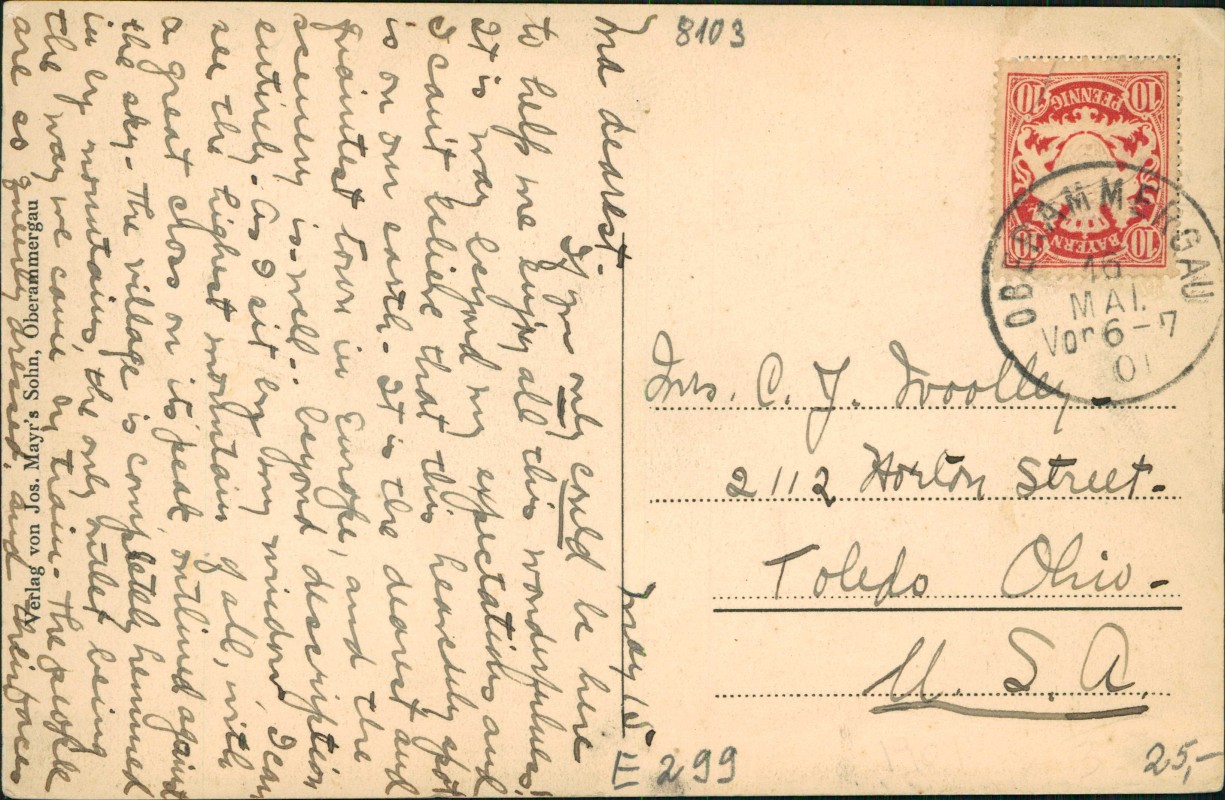 8103
May 15
My dearest.
If you only could be here
to help me enjoy all this wonderfulness!
It is way beyond my expectations and
I can't believe that this heavenly spot
is on our earth. It is the dearest and
quaintest town in Europe, and the
scenery is well.. beyond description
entirely. As I sit by my window I can
see the highest mountain of all, with
a great cross on its peak outlined against
the sky. The village is completely hemmed
in by mountains, the only outlet being
the way we came, by train. The people
are as quaintly dressed, and their faces
Verlag von Jos. Mayr's Sohn, Oberammergau
10 10
PFENNIG
BAYERN
10 10
OBERAMMERGAU
16
MAI.
Vor 6-7
01
Mrs. C. J. Woolley
2112 Horton Street.
Toledo Ohio.
U. S. A.
E 299
25,-